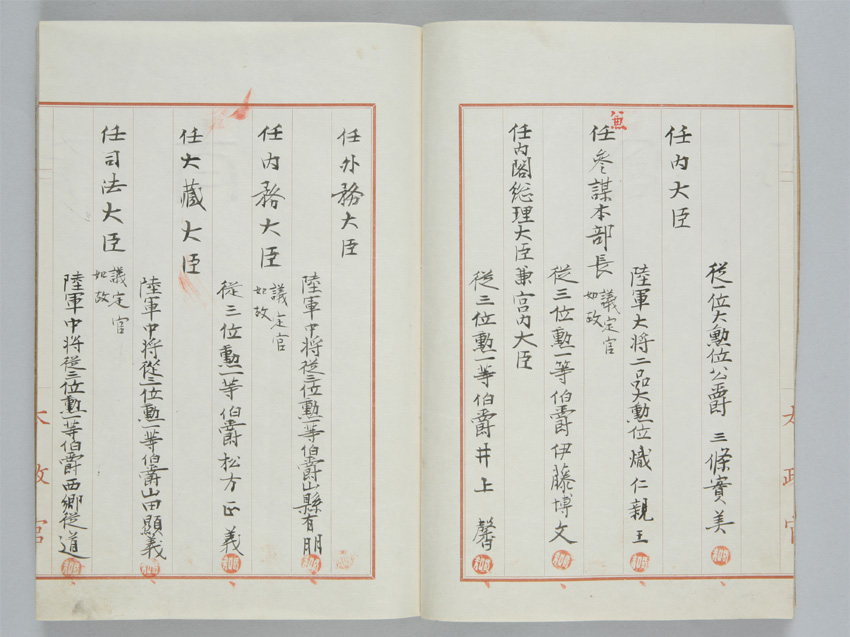 太政官
從一位大勲位公爵 三條實美
任内大臣
陸軍大将二品大勲位熾仁親王
兼
任参謀本部長
議定官
如故
從三位勲一等伯爵伊藤博文
任内閣総理大臣兼宮内大臣
從三位勲一等伯爵井上 馨
任外務大臣
陸軍中将從三位勲一等伯爵山縣有朋
任内務大臣
議定官
如故
從三位勲一等伯爵松方正義
任大藏大臣
陸軍中将從三位勲一等伯爵山田顯義
任司法大臣
議定官
如故
陸軍中将從三位勲一等伯爵西郷從道
太政官